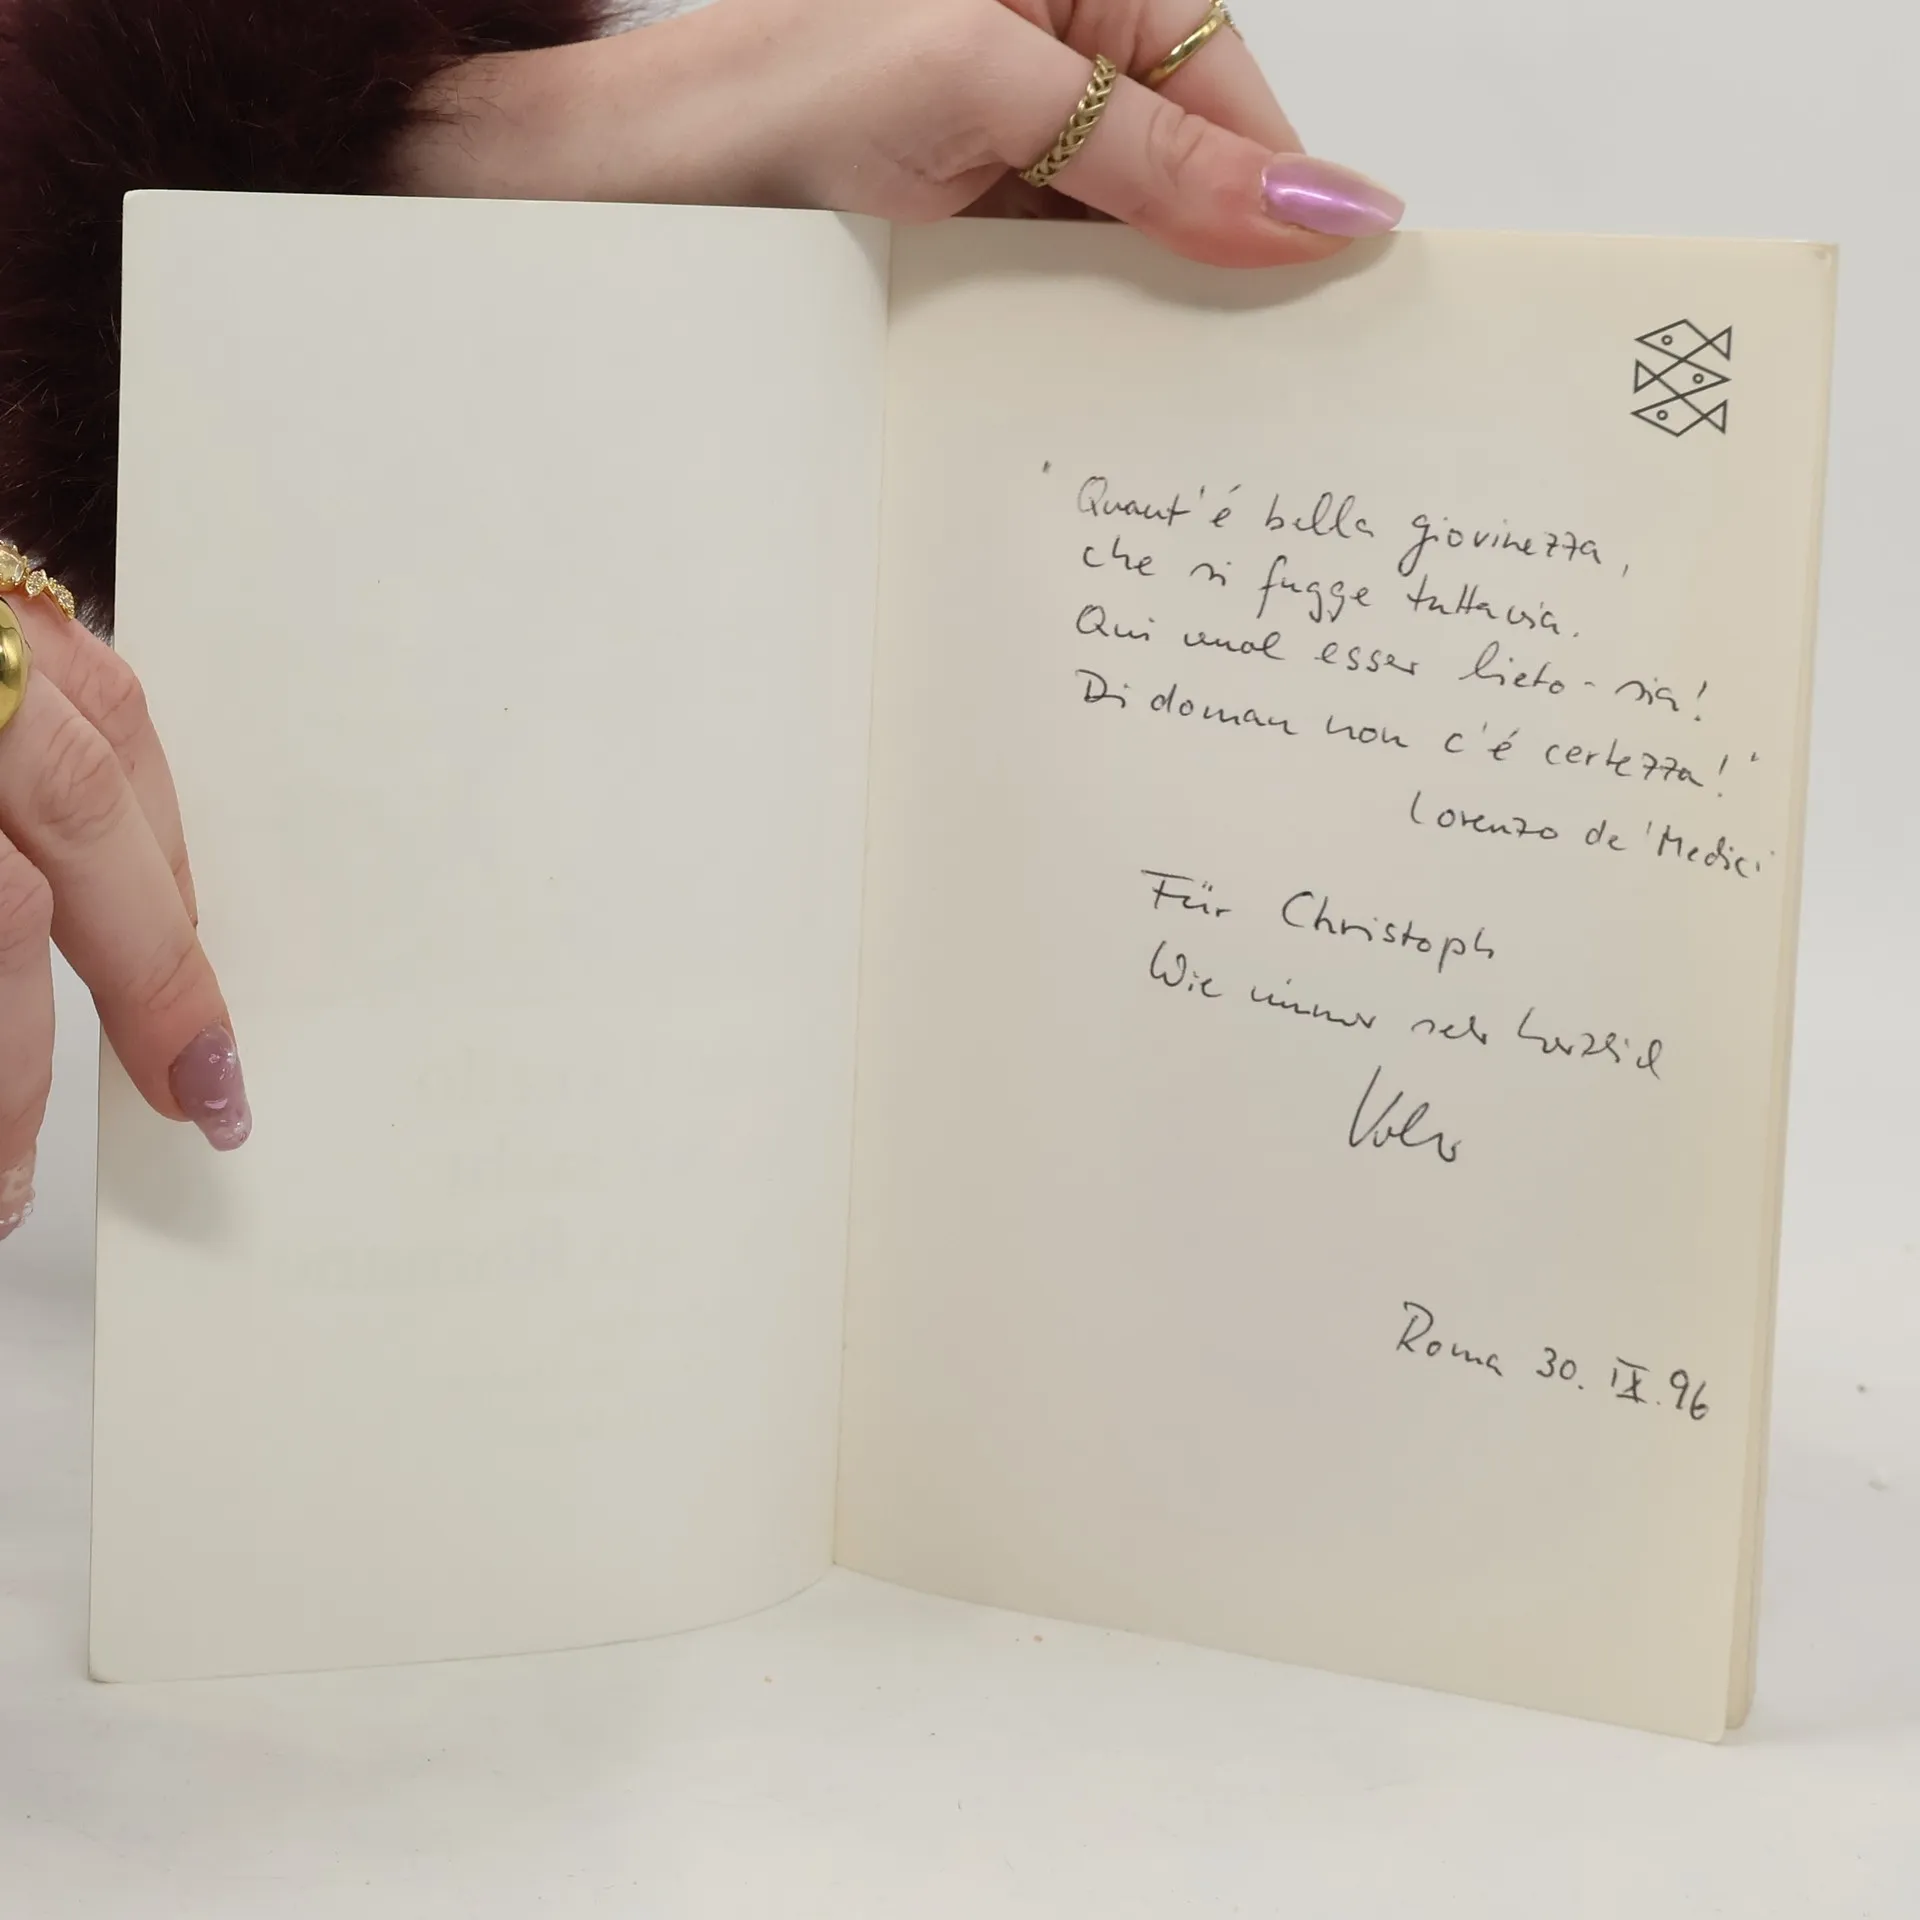 "Quant'é bella giovinezza,
che si fugge tuttavia.
Qui vuol esser lieto - sia!
Di doman non c'é certezza!"
Lorenzo de 'Medici
Für Christoph
Wie immer sehr herzlich
Roma 30. IX. 96